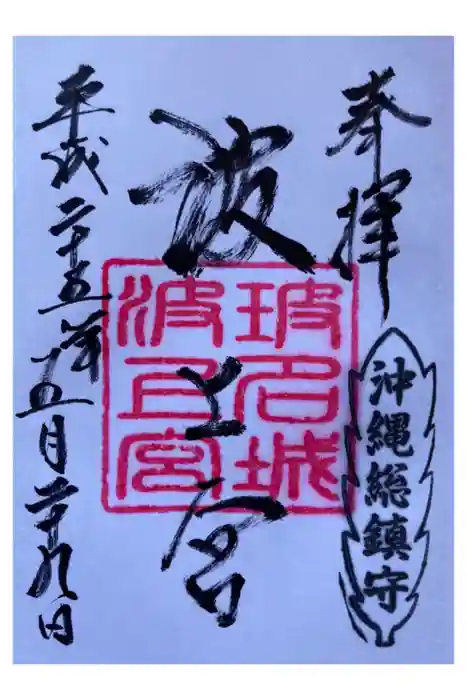 奉拝
沖縄総鎮守
波上宮
玻名城
波上宮
平成二十五年五月二十九日